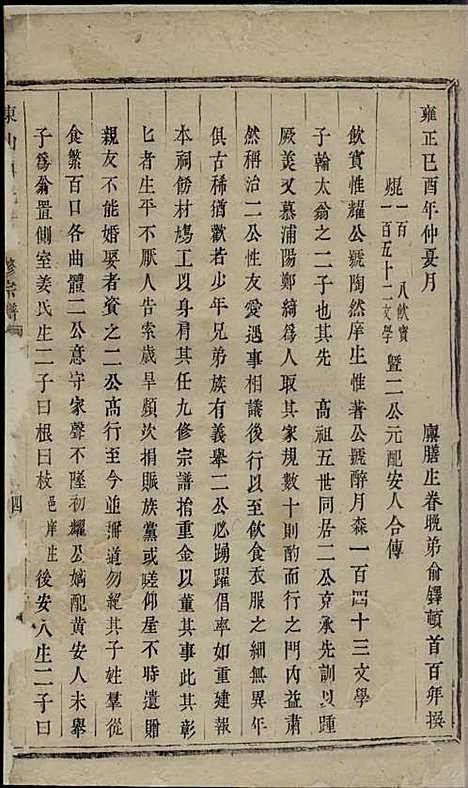 雍正己酉年仲夏月
廩膳生眷晚弟俞鐸頓首百拜撰
焜一百 八飲賓
一百五十二文學
暨二公元配安人合傳
飲賓惟耀公號陶然庠生惟著公號醉月森一百四十三文學
子翰太翁之二子也其先 高祖五世同居二公克承先訓以踵
厥美又慕浦陽鄭綺為人取其家規數十則酌而行之門內益肅
然稱治二公性友愛遇事相議後行以至飲食衣服之細無異年
俱古稀猶歡若少年兄弟族有義舉二公必踴躍倡率如重建報
本祠餝材鳩工以身肩其任九修宗譜捨重金以董其事此其彰
匕者生平不厭人告索歲旱頻次捐賑族黨或嗟仰屋不時遺贈
親友不能婚娶者資之二公高行至今並播道勿絕其子姓羣從
食繁百口各曲體二公意守家聲不墜初耀公嫡配黃安人未舉
子為翁置側室姜氏生二子曰根曰枝邑庠生後安人生二子曰
東山
修宗譜
四